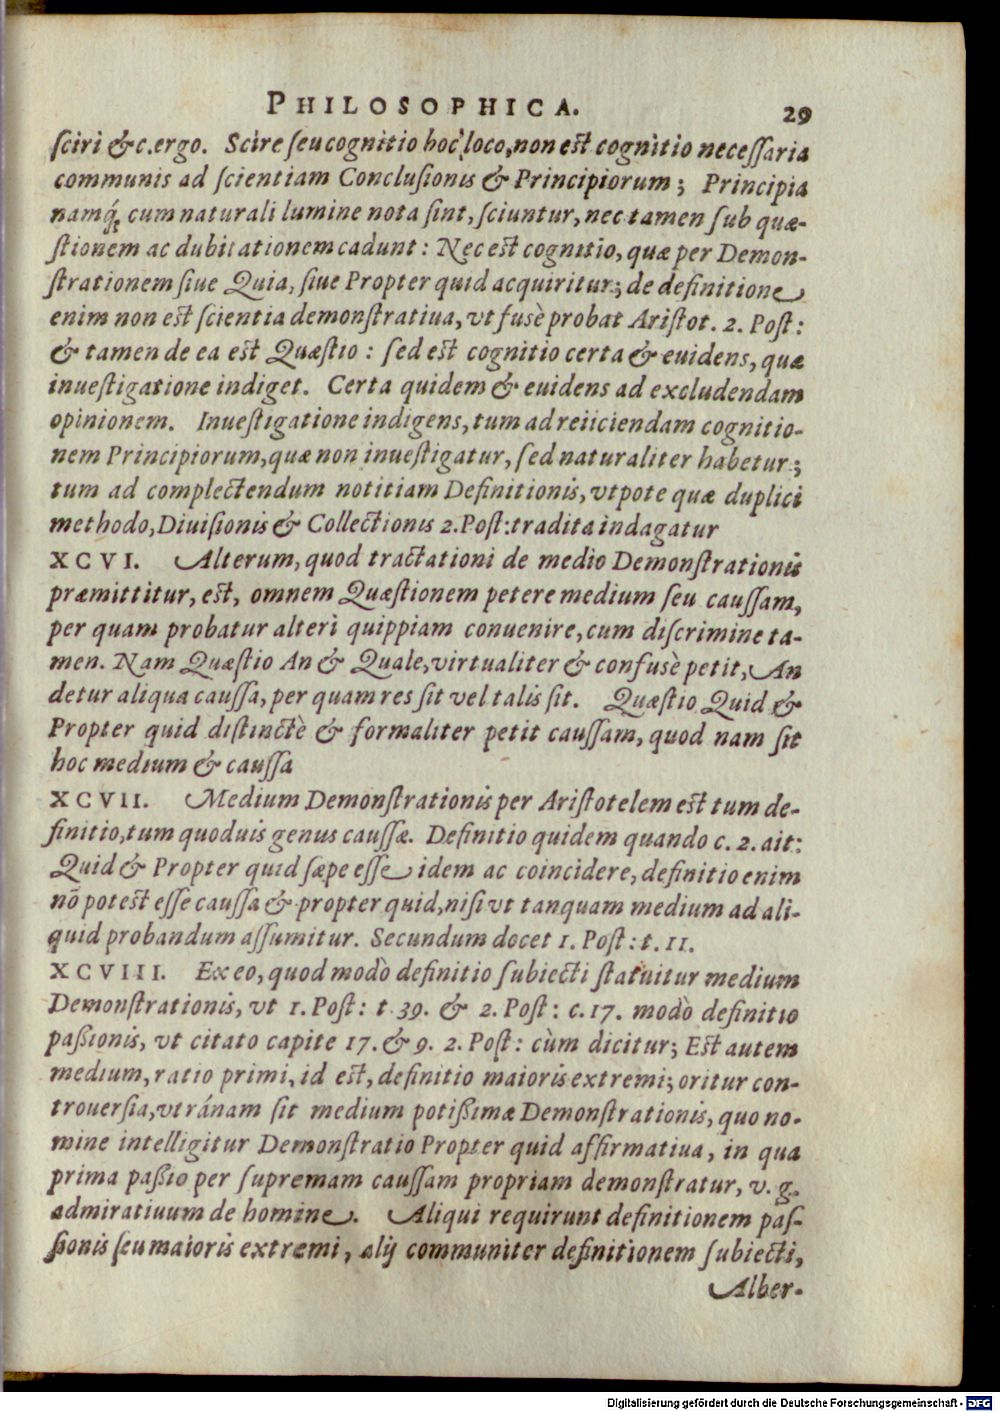 PHILOSOPHICA. 29
ſciri &c. ergo. Scire ſeu cognitio hoc loco, non est cognitio neceſſaria
communis ad ſcientiam Concluſionis & Principiorum; Principia
namq́; cum naturali lumine nota ſint, ſciuntur, nec tamen ſub quæ-
ſtionem ac dubitationem cadunt: Nec est cognitio, quæ per Demon-
ſtrationem ſiue Quia, ſiue Propter quid acquiritur; de definitione
enim non est ſcientia demonſtratiua, vt fusè probat Ariſtot. 2. Poſt:
& tamen de ea est Quæſtio: ſed est cognitio certa & euidens, quæ
inueſtigatione indiget. Certa quidem & euidens ad excludendam
opinionem. Inueſtigatione indigens, tum ad reiiciendam cognitio-
nem Principiorum, quæ non inueſtigatur, ſed naturaliter habetur;
tum ad complectendum notitiam Definitionis, vtpote quæ duplici
methodo, Diuiſionis & Collectionis 2. Poſt: tradita indagatur
XCVI. Alterum, quod tractationi de medio Demonſtrationis
præmittitur, est, omnem Quæſtionem petere medium ſeu cauſſam,
per quam probatur alteri quippiam conuenire, cum diſcrimine ta-
men. Nam Quæſtio An & Quale, virtualiter & confusè petit, An
detur aliqua cauſſa, per quam res ſit vel talis ſit. Quæſtio Quid &
Propter quid diſtinctè & formaliter petit cauſſam, quod nam ſit
hoc medium & cauſſa
XCVII. Medium Demonſtrationis per Ariſtotelem est tum de-
finitio, tum quoduis genus cauſſæ. Definitio quidem quando c. 2. ait:
Quid & Propter quid ſæpe eſſe idem ac coincidere, definitio enim
nō potest eſſe cauſſa & propter quid, niſi vt tanquam medium ad ali-
quid probandum aſſumitur. Secundum docet 1. Poſt: t. 11.
XCVIII. Ex eo, quod modò definitio ſubiecti ſtatuitur medium
Demonſtrationis, vt 1. Poſt: t 39. & 2. Poſt: c. 17. modò definitio
paßionis, vt citato capite 17. & 9. 2. Poſt: cùm dicitur; Est autem
medium, ratio primi, id est, definitio maioris extremi; oritur con-
trouerſia, vtránam ſit medium potißimæ Demonſtrationis, quo no-
mine intelligitur Demonſtratio Propter quid affirmatiua, in qua
prima paßio per ſupremam cauſſam propriam demonſtratur, v. g.
admiratiuum de homine. Aliqui requirunt definitionem paſ-
ſionis ſeu maioris extremi, alij communiter definitionem ſubiecti,
Alber-
Digitalisierung gefördert durch die Deutsche Forschungsgemeinschaft - DFG